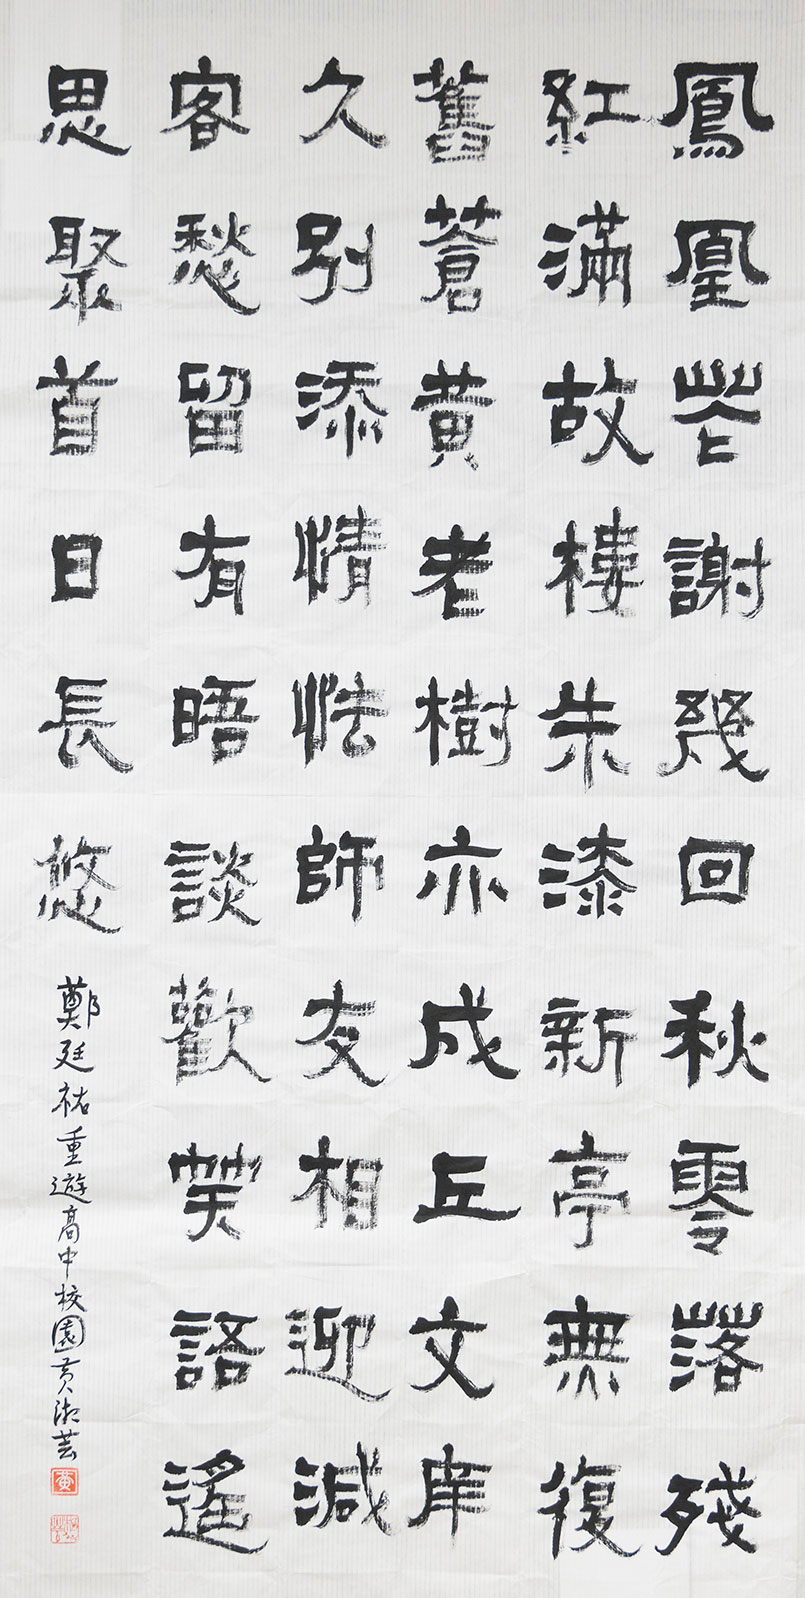 鳳凰花謝幾回秋零落殘
紅滿故樓朱漆新亭無復
舊蒼黃老樹亦成丘文庠
久別添情怯師友相迎減
客愁留有晤談歡笑語遙
思聚首日長悠
鄭廷祐重遊高中校園黃淑芸
黃